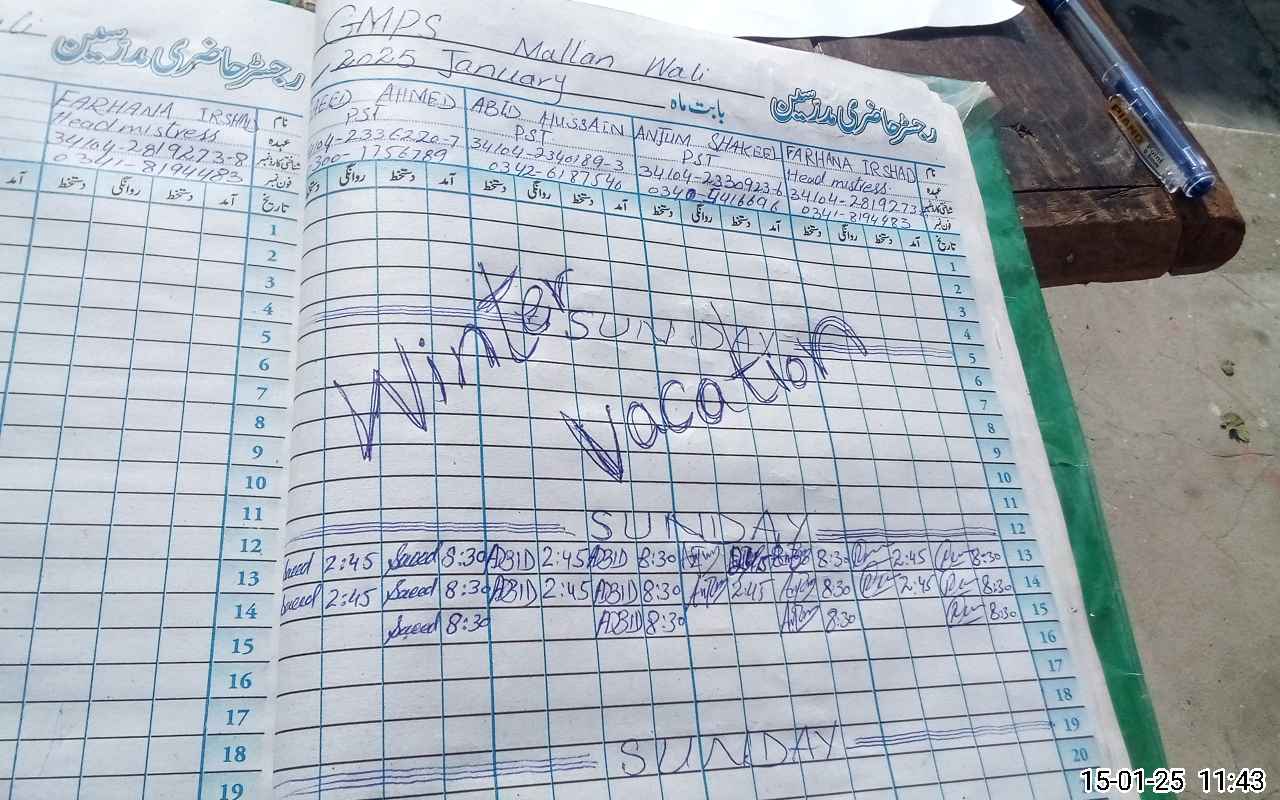 رجسٹر حاضری مدرسین
FARHANA IRSHAD نام
Headmistress عہدہ
34104-2819273-8
0341-8194483 فون نمبر
آمد دستخط روانگی دستخط آمد تاریخ
1
2
3
4
5
6
7
8
9
10
11
12
13
14
15
16
17
18
19
GMPS Mallan Wali
2025 January بابت ماہ رجسٹر حاضری مدرسین
AHMED ABID HUSSAIN ANJUM SHAKEEL FARHANA IRSHAD نام
PST PST PST Headmistress عہدہ
34104-2340189-3 34104-2330923-6 34104-2819273
1756789 0342-6187546 0341-8194483 فون نمبر
روانگی دستخط آمد دستخط روانگی دستخط آمد دستخط روانگی دستخط آمد دستخط روانگی دستخط آمد تاریخ
1
2
3
Winter SUNDAY 4
5
6
Vacation 7
8
9
10
11
SUNDAY 12
Saeed 2:45 Saeed 8:30 ABID 2:45 ABID 8:30 8:30 2:45 8:30 13
Saeed 2:45 Saeed 8:30 ABID 2:45 ABID 8:30 Anjum 2:45 Anjum 8:30 2:45 8:30 14
Saeed 8:30 ABID 8:30 Anjum 8:30 8:30 15
16
17
18
SUNDAY 19
20
15-01-25 11:43